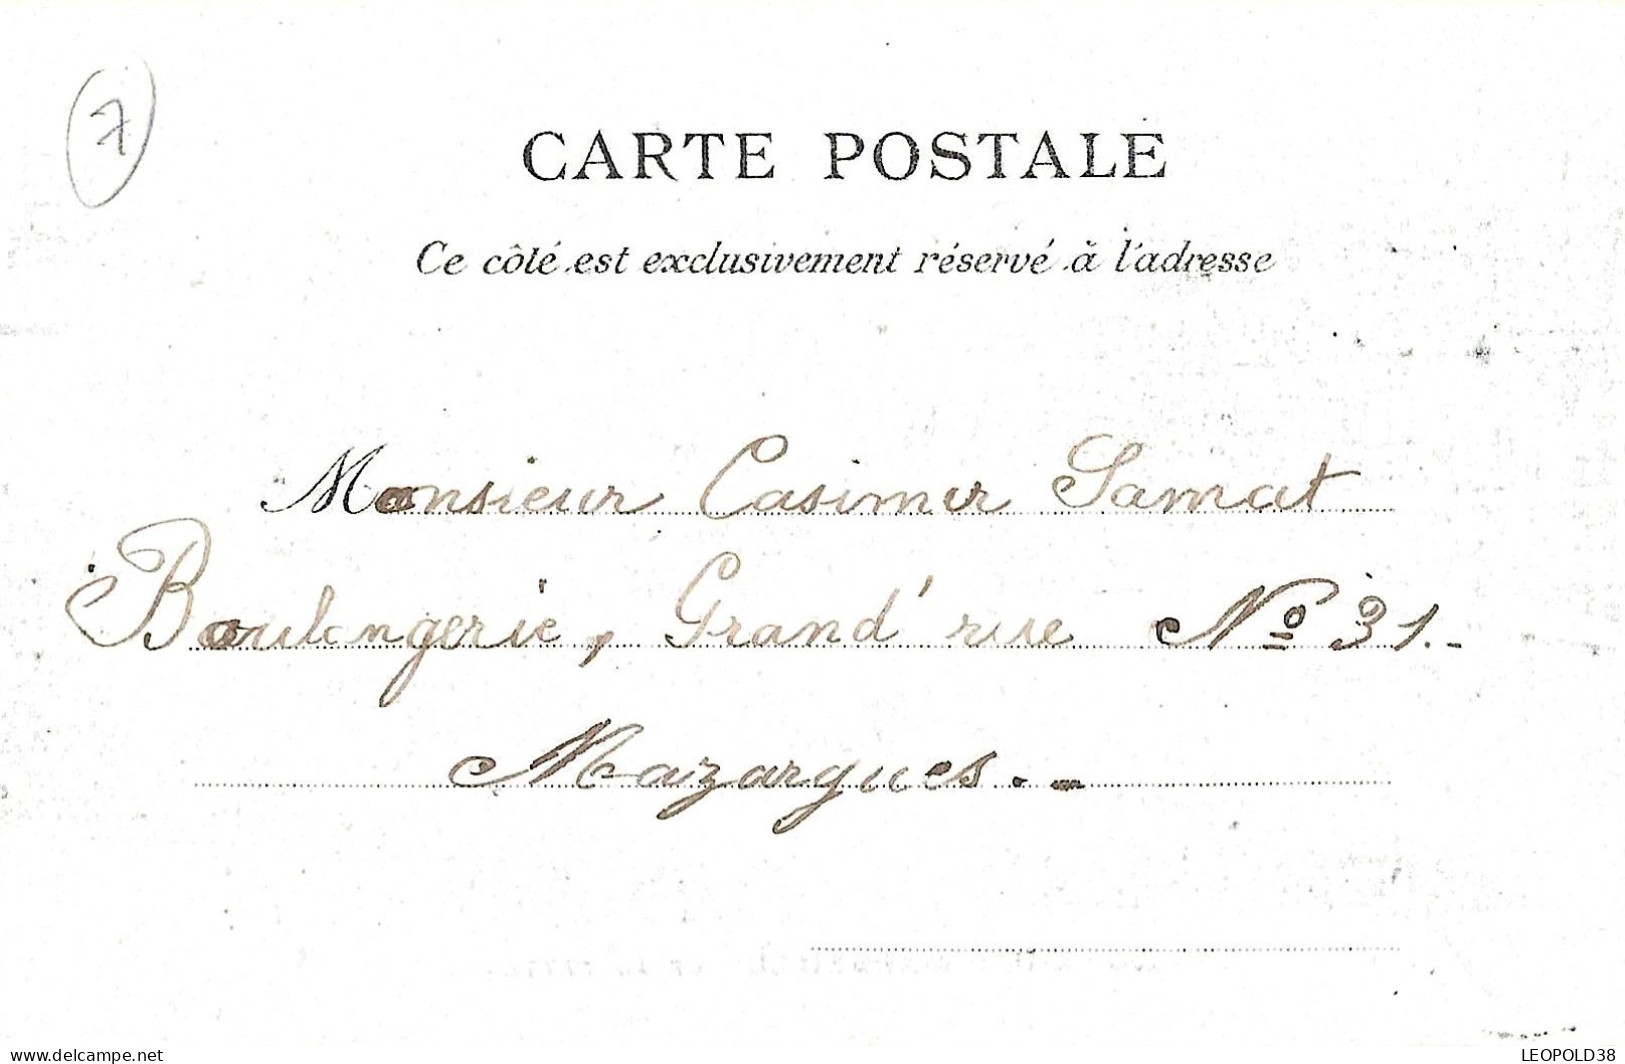 7
CARTE POSTALE
Ce côté est exclusivement réservé à l'adresse
Monsieur Casimir Samat
Boulangerie, Grand'rue Nº 31.-
Mazargues.-
www.delcampe.net
LEOPOLD38